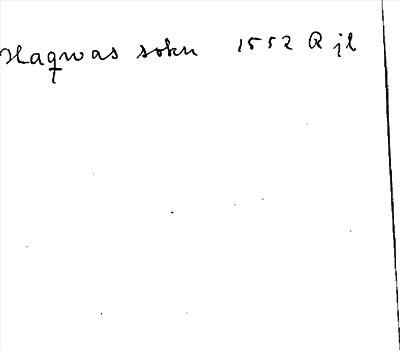 Haqwas sokn 1552 R jl